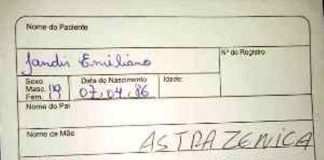 Nome do Paciente
Jandir Emiliano
Nº do Registro
Sexo
Masc.
Fem.
Data do Nascimento
07.04.86
Idade:
Nome do Pai
Nome da Mãe
ASTRAZENICA